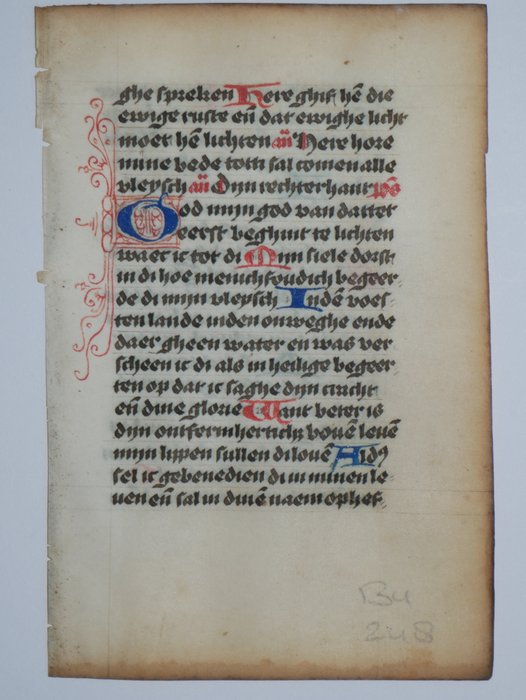 ghe spreken Here ghif hē die
ewige ruste eñ dat ewighe licht
moet hē lichten añ Here hore
mine bede totti sal comen alle
vleysch añ Dijn rechterhant ps
God mijn god van datter
eerst beghint te lichten
waec ic tot di Mijn siele dorst
in di hoe menichfoudich begeer-
de di mijn vleysch Indē woes-
ten lande inden onweghe ende
daer gheen water en was ver
scheen ic di als in heilige begeer-
ten op dat ic saghe dijn cracht
eñ dine glorie Want beter is
dijn ontfermherticħ bouē leuē
mijn lippen sullen di louē Aldꝰ
sel ic gebenedien di in minen le-
uen eñ sal in dinē naem ophef-
248